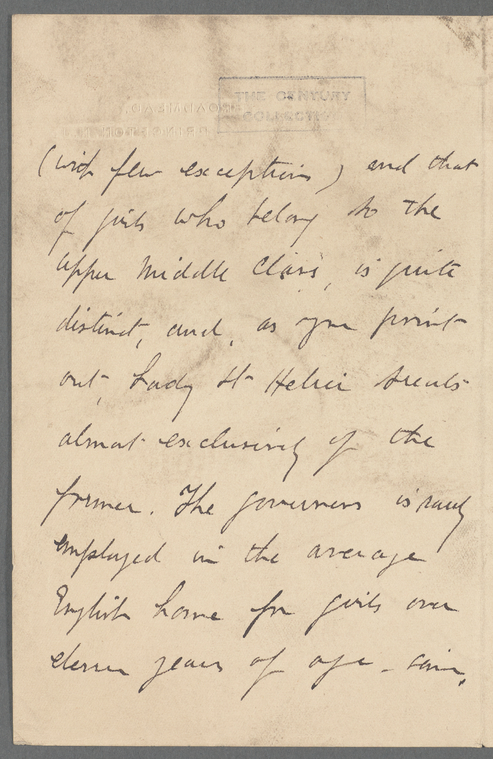 THE CENTURY
COLLECTION
(with few exceptions) and that
of girls who belong to the
upper middle class, is quite
distinct, and, as you point
out, Lady St Helier treats
almost exclusively of the
former. The governess is rarely
employed in the average
English home for girls over
eleven years of age -